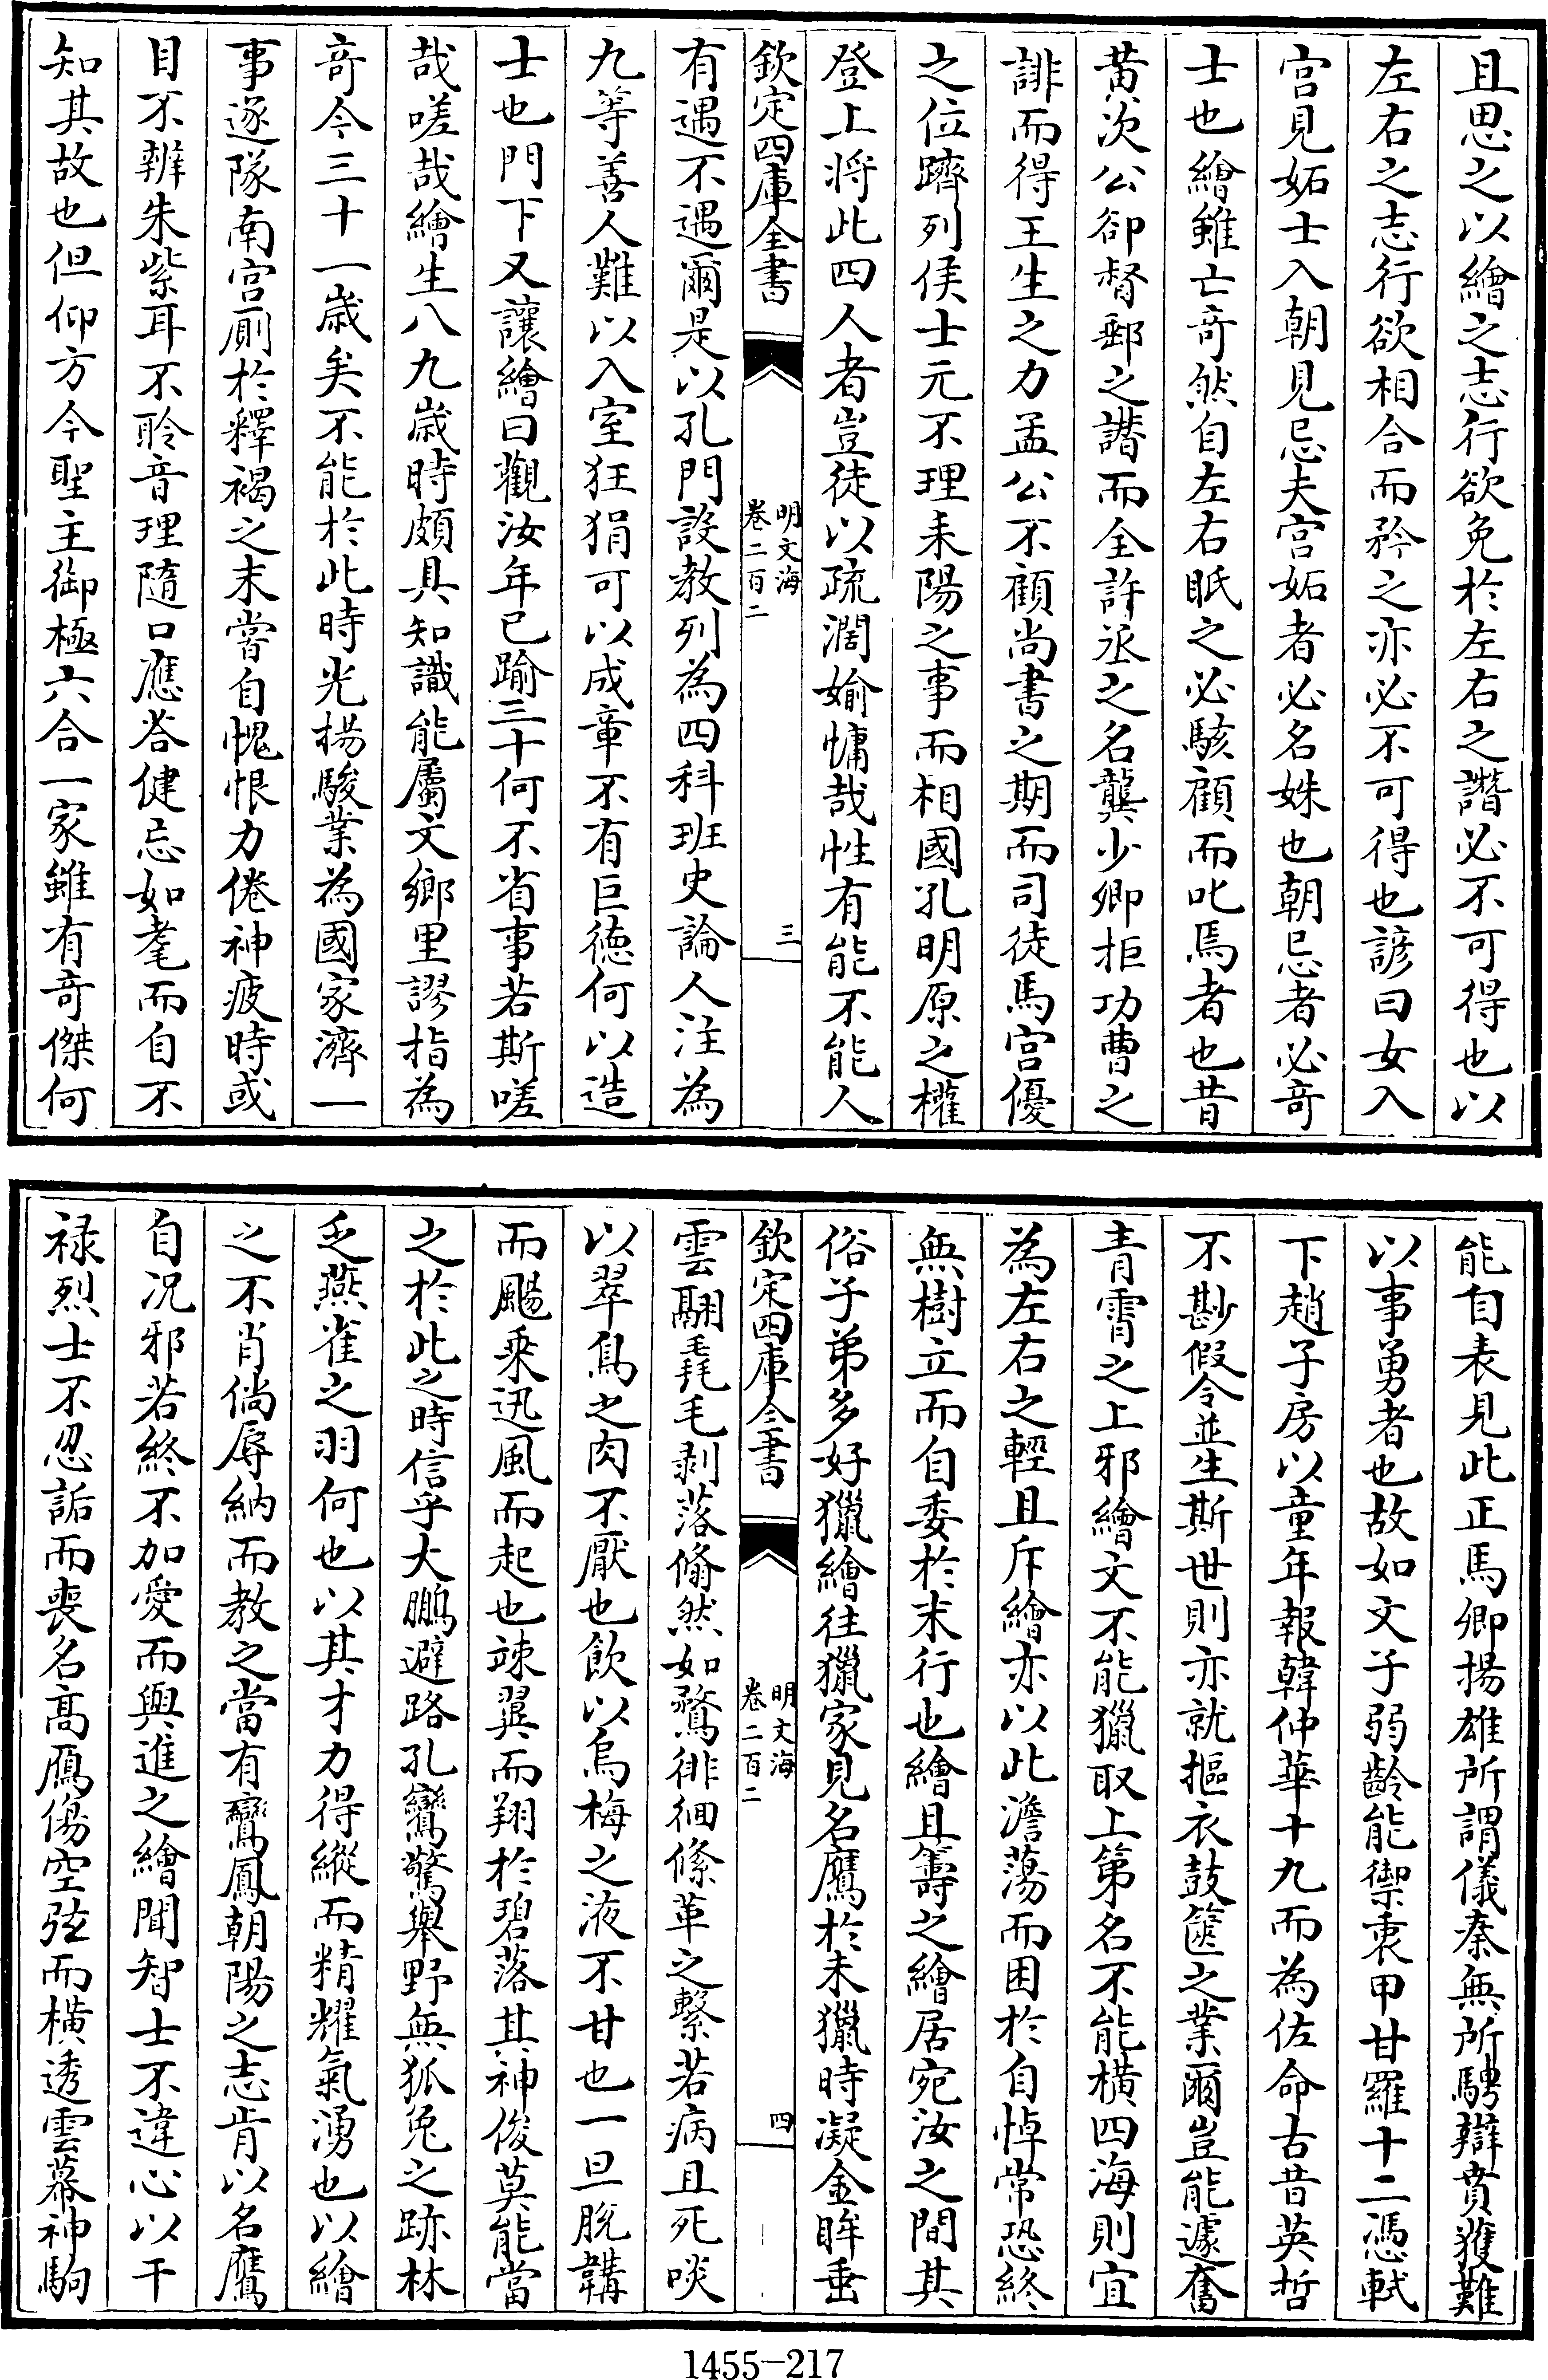 且思之以繪之志行欲免於左右之譖必不可得也以
左右之志行欲相合而矜之亦必不可得也諺曰女入
宫見妬士入朝見忌夫宫妬者必名姝也朝忌者必竒
士也繪雖亡竒然自左右眂之必駭顧而叱焉者也昔
黄次公卻督郵之譖而全許丞之名龔少卿拒功曹之
誹而得王生之力孟公不顧尚書之期而司徒馬宫優
之位躋列侯士元不理耒陽之事而相國孔明原之權
登上將此四人者豈徒以疏濶婾慵哉性有能不能人
欽定四庫全書
明文海
卷二百二
三
有遇不遇爾是以孔門設教列為四科班史論人注為
九等善人難以入室狂狷可以成章不有巨徳何以造
士也門下又讓繪曰觀汝年已踰三十何不省事若斯嗟
哉嗟哉繪生八九歲時頗具知識能屬文鄉里謬指為
竒今三十一歲矣不能於此時光揚駿業為國家濟一
事逐隊南宫厠於釋褐之末嘗自愧恨力倦神疲時或
目不辨朱紫耳不聆音理隨口應荅健忘如耄而自不
知其故也但仰方今聖主御極六合一家雖有竒傑何
能自表見此正馬卿揚雄所謂儀秦無所騁辯賁獲難
以事勇者也故如文子弱齡能禦衷甲甘羅十二憑軾
下趙子房以童年報韓仲華十九而為佐命古昔英哲
不尠假令並生斯世則亦就摳衣鼓篋之業爾豈能遽奮
青霄之上邪繪文不能獵取上第名不能横四海則宜
為左右之輕且斥繪亦以此澹蕩而困於自悼常恐終
無樹立而自委於末行也繪且籌之繪居宛汝之間其
俗子弟多好獵繪往獵家見名鷹於未獵時凝金眸垂
欽定四庫全書
明文海
卷二百二
四
雲翮毳毛剥落翛然如鶩徘徊絛革之繫若病且死啖
以翠鳥之肉不厭也飲以烏梅之液不甘也一旦脱韝
而颺乘迅風而起也竦翼而翔於碧落其神俊莫能當
之於此之時信乎大鵬避路孔鸞驚舉野無狐兔之跡林
乏燕雀之羽何也以其才力得縱而精耀氣湧也以繪
之不肖倘辱納而教之當有鸞鳳朝陽之志肯以名鷹
自况邪若終不加愛而與進之繪聞智士不違心以干
禄烈士不忍詬而喪名高鴈傷空弦而横透雲幕神駒
1455—217